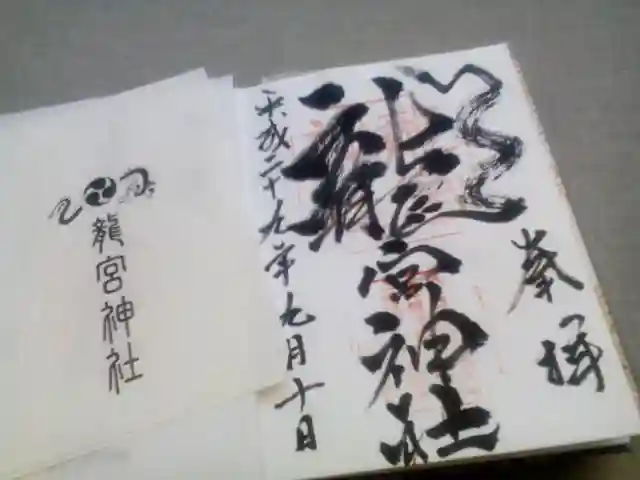 奉拝
龍宮神社
平成二十九年九月十日
龍宮神社